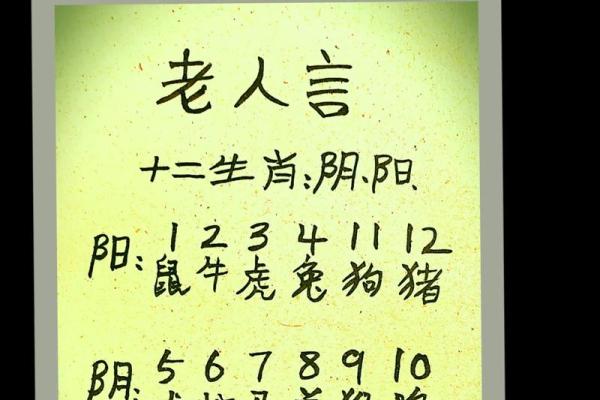 老人言
十二生肖:阴、阳、
阳: 1 2 3 4 11 12
鼠 牛 虎 兔 狗 猪
阴: 5 6 7 8 9 10